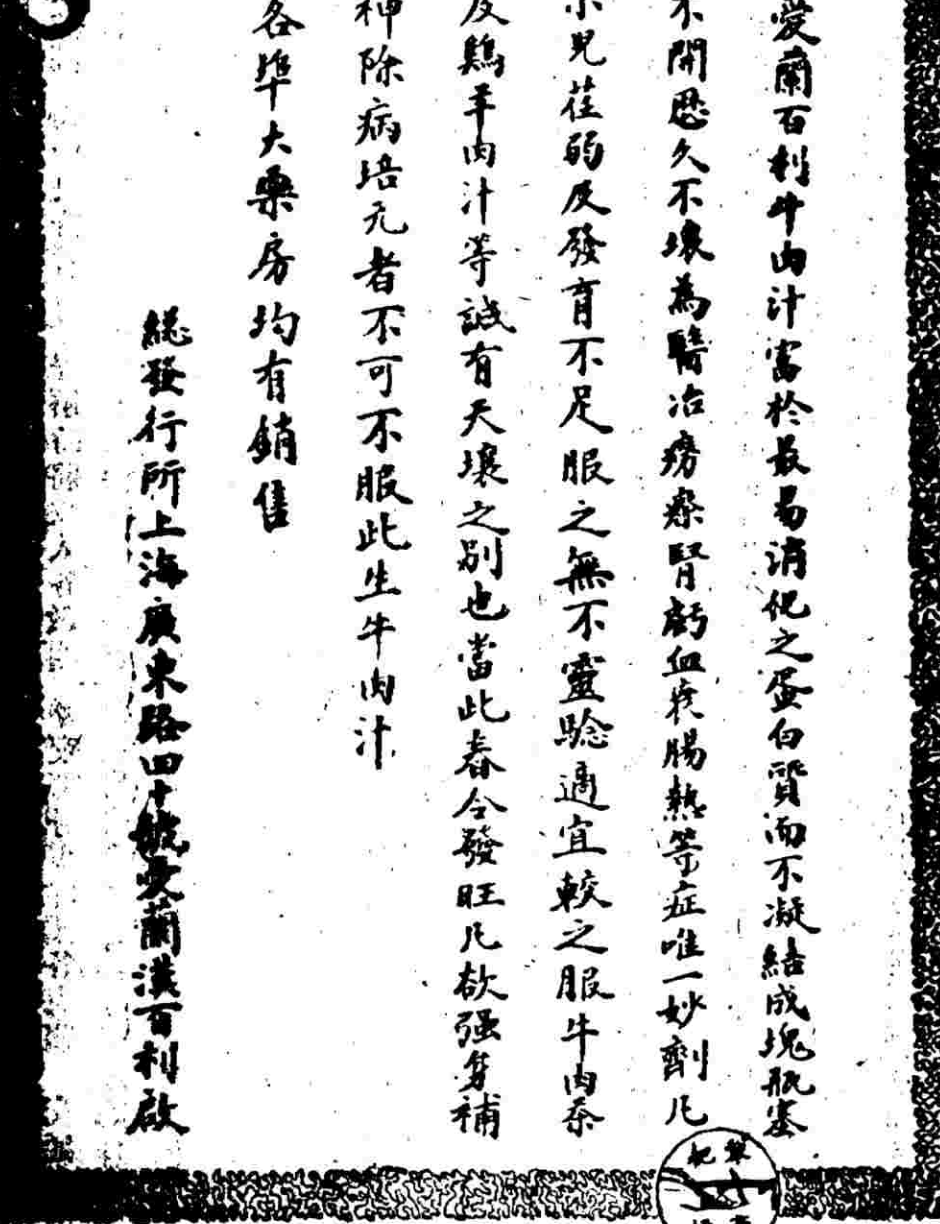 愛蘭百利牛肉汁富於最易消化之蛋白質而不凝結成塊瓶塞
不開歷久不壞為醫治癆瘵腎虧血痰腸熱等症唯一妙劑凡
小兒荏弱及發育不足服之無不靈驗適宜較之服牛肉茶
及鷄羊肉汁等誠有天壤之別也當此春令發旺凡欲强身補
神除病培元者不可不服此生牛肉汁
各埠大藥房均有銷售
總發行所上海廣東路四十號愛蘭漢百利啟